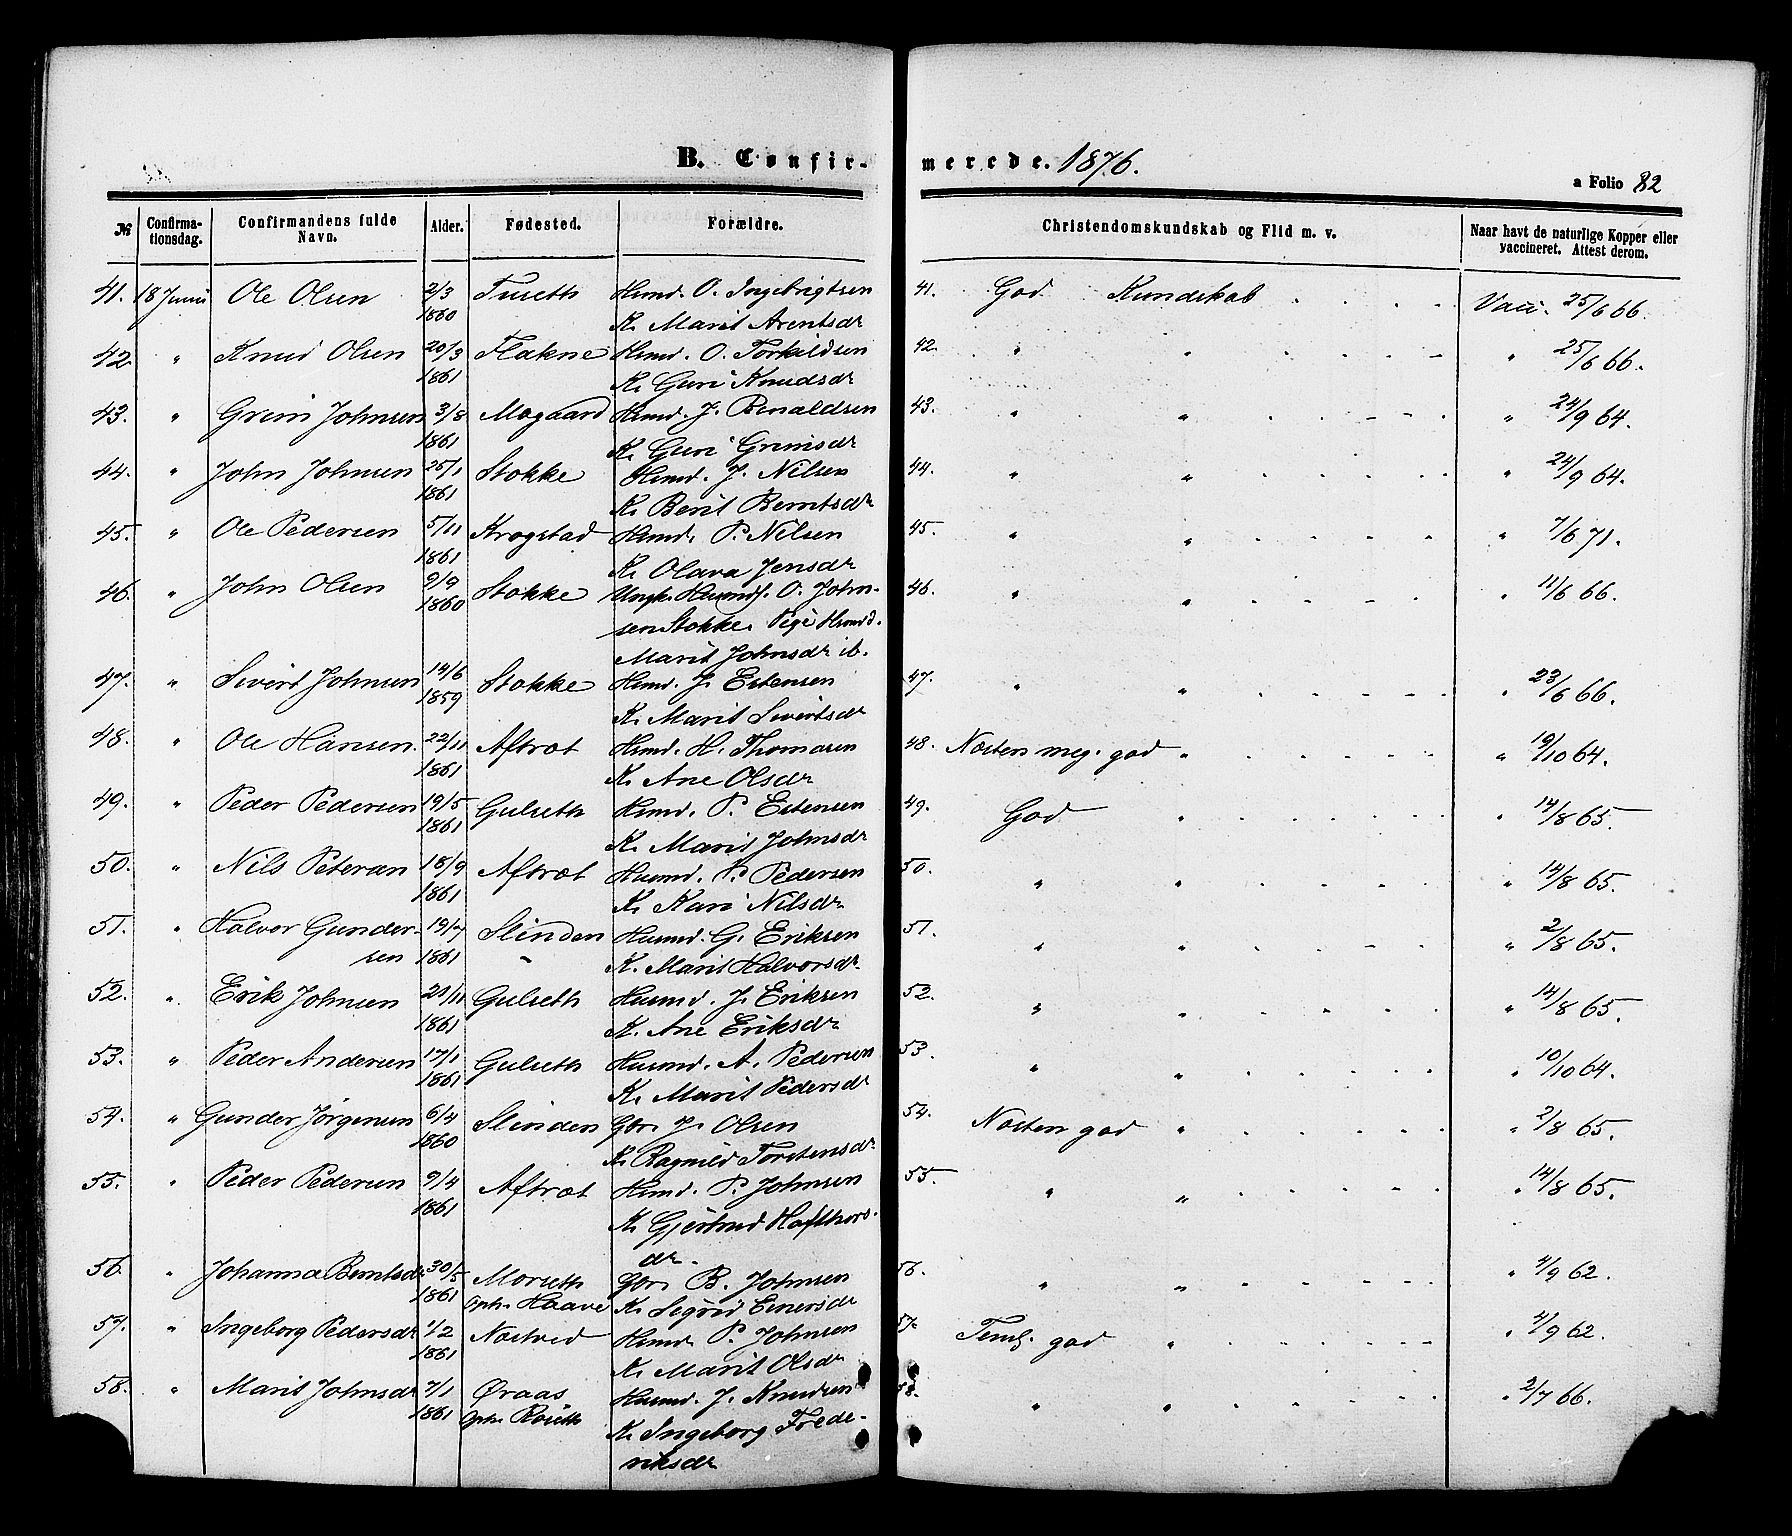 B. Confir-
merede. 1876.
a Folio 82
№ Confirma-tionsdag. Confirmandens fulde Navn. Alder. Fødested. Forældre.
Christendomskundskab og Flid m. v. Naar havt de naturlige Kopper eller vaccineret. Attest derom.
41. 18 Juni Ole Olsen 2/3 Tuseth Husmd. O. Ingebrigtsen 41. God Kundskab Vacc. 25/6 66.
1860 K. Marit Arentsdr
42. " Knud Olsen 20/3 Flakne Husmd. O. Torkildsen 42. " " " 25/6 66.
1861 K. Guri Knudsdr
43. " Grim Johnsen 3/8 Mogaard Husmd. J. Renaldsen 43. " " " 24/9 64.
1861 K. Guri Grimsdr
44. " John Johnsen 25/1 Stokke Husmd. J. Nilsen 44. " " " 24/9 64.
1861 K. Berit Berntsdr
45. " Ole Pedersen 5/11 Krogstad Husmd. P. Nilsen 45. " " " 7/6 71.
1861 K. Olava Jensdr
46. " John Olsen 9/9 Stokke Ungk. Husmds. O. John- 46. " " " 11/6 66.
1860 sen Stokke. Pige Husmd.
Marit Johnsdr ib.
47. " Sivert Johnsen 14/6 Stokke Husmd. J. Estensen 47. " " " 23/6 66.
1859 K. Marit Sivertsdr
48. " Ole Hansen. 22/11 Aftræt Husmd. H. Thomasen 48. Næsten meg. god " " 19/10 64.
1861 K. Ane Olsdr
49. " Peder Pedersen 19/5 Gulseth Husmd. P. Estensen 49. God " " 14/8 65.
1861 K. Marit Johnsdr
50. " Nils Peteran 18/9 Aftræt Husmd. P. Pedersen 50. " " " 14/8 65.
1861 K. Kari Nilsdr
51. " Halvor Gunder- 19/7 Slinden Husmd. G. Eriksen 51. " " " 2/8 65.
sen 1861 K. Marit Halvorsdr
52. " Erik Johnsen 21/11 Gulseth Husmd. J. Eriksen 52. " " " 14/8 65.
1861 K. Ane Eriksdr
53. " Peder Andersen 17/1 Gulseth Husmd. A. Pedersen 53. " " " 10/10 64.
1861 K. Marit Pedersdr
54. " Gunder Jørgensen 6/4 Slinden Gbr. J. Olsen 54. Næsten god " " 2/8 65.
1860 K. Ragnild Torstensdr
55. " Peder Pedersen 9/4 Aftræt Husmd. P. Johnsen 55. " " " 14/8 65.
1861 K. Gjertrud Hafthors-
dr.
56. " Johanna Berntsdr 30/5 Morseth Gbr. B. Johnsen 56. " " " 4/9 62.
1861 Oph. Haave K. Sigrid Einersdr
57. " Ingeborg Pedersdr 1/2 Næstved Husmd P. Johnsen 57. Teml. god " " 4/9 62.
1861 K. Marit Olsdr
58. " Marit Johnsdr 7/1 Øraas Husmd. J. Knudsen 58. " " " 2/7 66.
1861 Oph. Roseth K. Ingeborg Frede-
riksdr